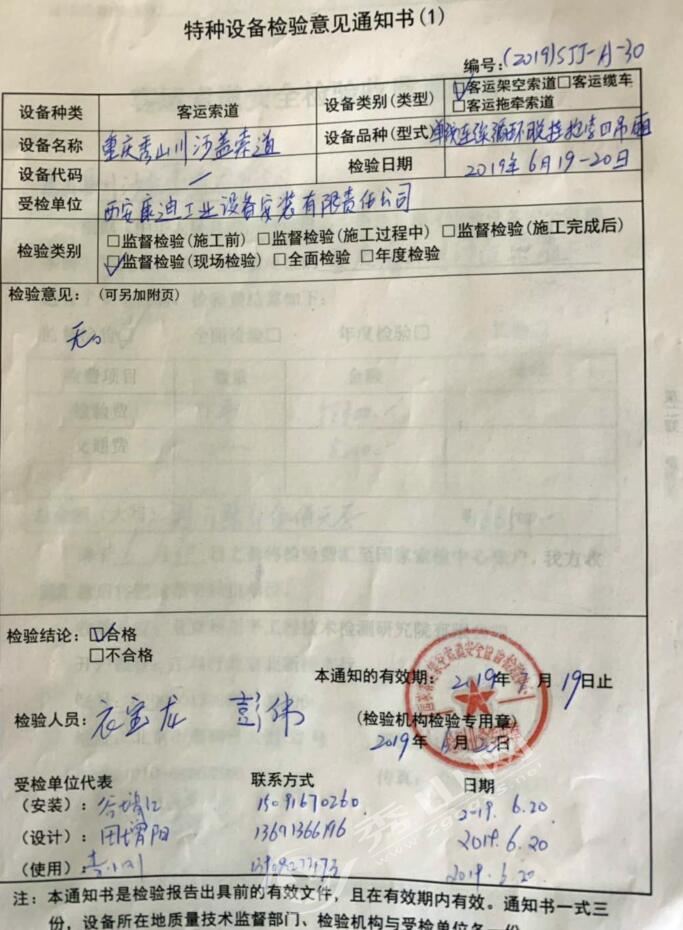 特种设备检验意见通知书(1)
编号:(2019)SJJ-A-30
设备种类 客运索道 设备类别(类型) ☑客运架空索道□客运缆车
□客运拖牵索道
设备名称 重庆秀山川河盖索道 设备品种(型式) 单线连续循环脱挂抱索器吊厢
设备代码 / 检验日期 2019年6月19-20日
受检单位 西安康迪工业设备安装有限责任公司
检验类别 □监督检验(施工前) □监督检验(施工过程中) □监督检验(施工完成后)
☑监督检验(现场检验) □全面检验 □年度检验
检验意见: (可另加附页)
无
检验结论: ☑合格
□不合格
本通知的有效期: 2019年 月19日止
检验人员: 衣宝龙 彭伟 (检验机构检验专用章)
2019年6月20日
受检单位代表 联系方式 日期
(安装): 15091670260 2019.6.20
(设计): 田增阳 13691366196 2019.6.20
(使用): 2019.6.20
注: 本通知书是检验报告出具前的有效文件，且在有效期内有效。通知书一式三
份，设备所在地质量技术监督部门、检验机构与受检单位各一份